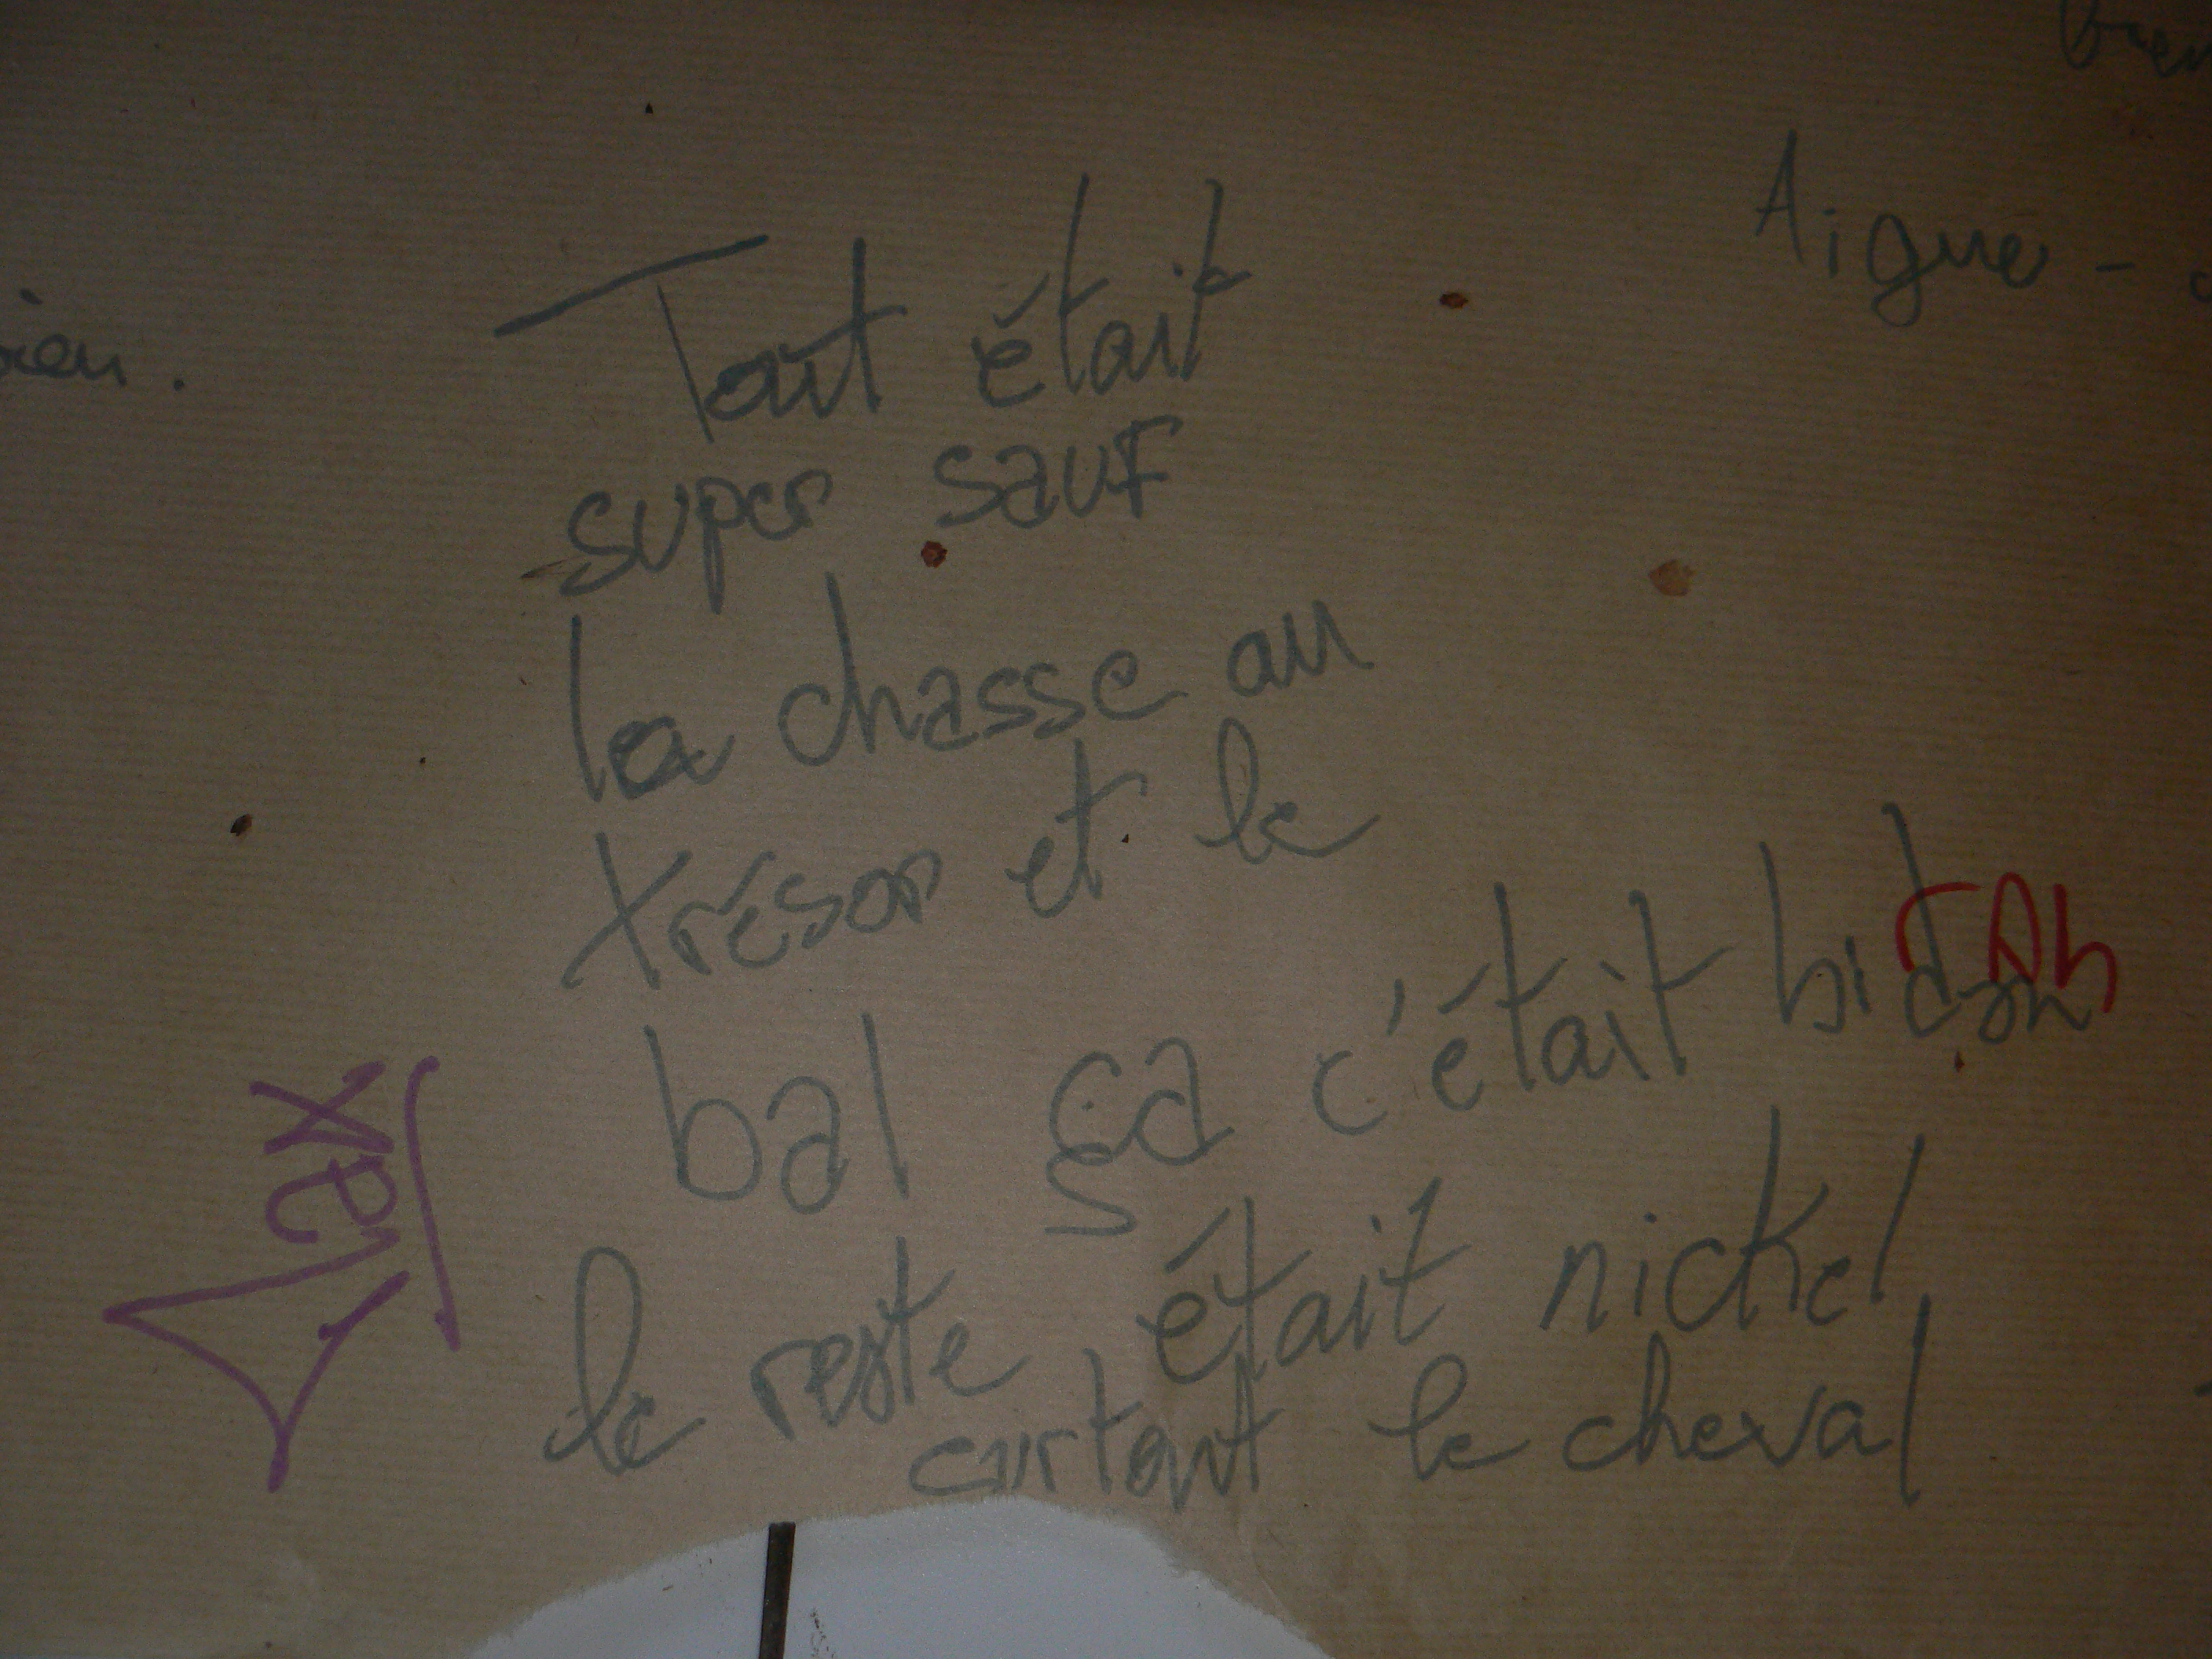 Aigue -
Tout était
super sauf
la chasse au
trésor et le
bal ça c'était bidon
le reste était nickel
surtout le cheval
Max